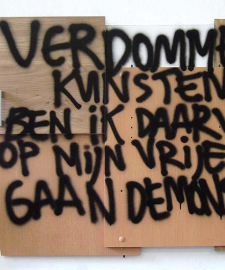 VERDOMME
KUNSTEN
BEN iK DAARV
OP MiJN VRIJE
GAAN DEMONS